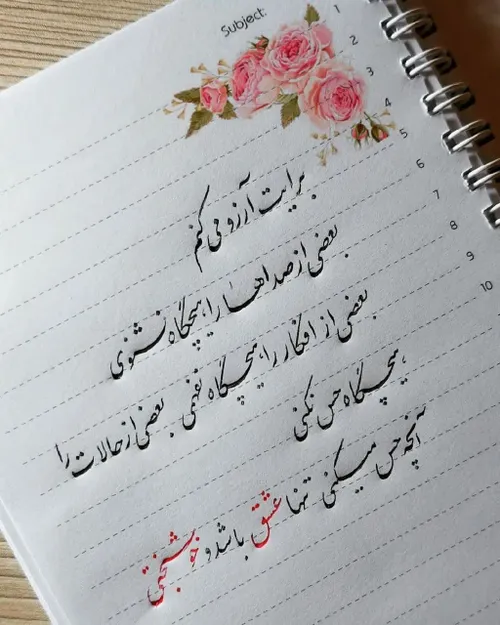 Subject:
1
2
3
4
5
6
7
8
9
10
برایت آرزو می کنم
بعضی از صداها را هیچگاه نشنوی
بعضی از افکار را هیچگاه نفهمی بعضی از حالات را
هیچگاه حس نکنی
آنچه حس میکنی تنها عشق باشد و خوشبختی